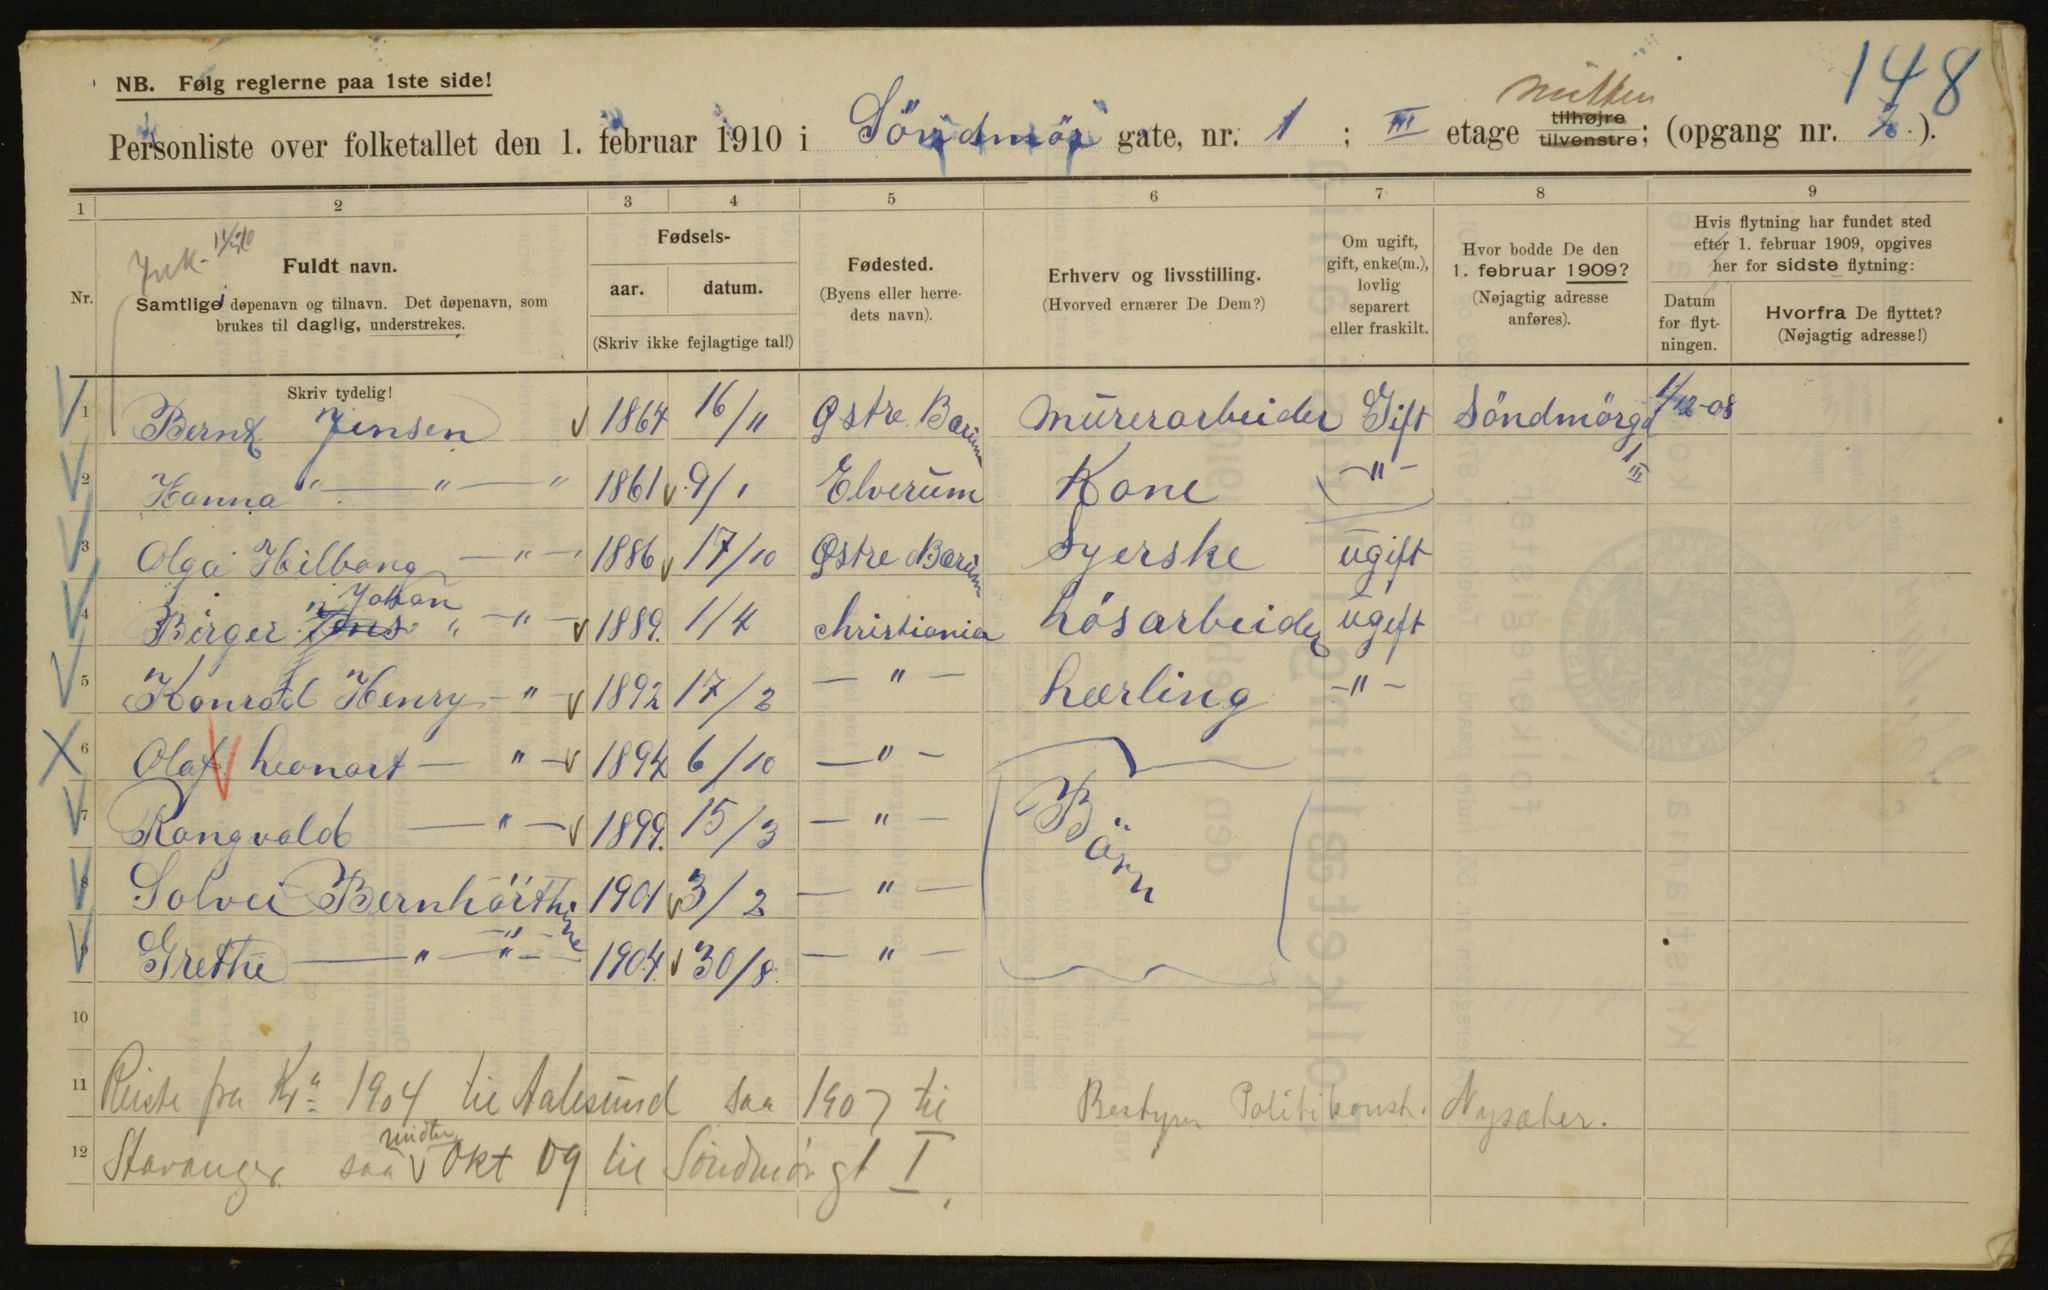 148
NB. Følg reglerne paa 1ste side!
Personliste over folketallet den 1. februar 1910 i Söndmör gate, nr. 1 ; III etage tilhøjre tilvenstre midten ; (opgang nr. 2. ).
1 2 3 4 5 6 7 8 9
Nr.
Fuldt navn.
Samtlige døpenavn og tilnavn. Det døpenavn, som
brukes til daglig, understrekes.
Skriv tydelig!
Fødsels-
aar. datum.
(Skriv ikke fejlagtige tal!)
Fødested.
(Byens eller herre-
dets navn).
Erhverv og livsstilling.
(Hvorved ernærer De Dem?)
Om ugift,
gift, enke(m.),
lovlig
separert
eller fraskilt.
Hvor bodde De den
1. februar 1909?
(Nøjagtig adresse
anføres).
Hvis flytning har fundet sted
efter 1. februar 1909, opgives
her for sidste flytning:
Datum
for flyt-
ningen.
Hvorfra De flyttet?
(Nøjagtig adresse!)
1 Bernt Jensen 1864 16/11 Østre Bærum Murerarbeider Gift Söndmörgd 1 III 1/12-08
2 Hanna " — " — " 1861 9/1 Elverum Kone — " —
3 Olga Hilbang — " — 1886 17/10 Østre Bærum Syerske ugift
4 Birger Jens Johan " — " — 1889. 1/4 Christiania Løsarbeider ugift
5 Konrad Henry — " — 1892 17/2 — " — Lærling — " —
6 Olaf Leonart — " — 1894 6/10 — " —
7 Rangvald — " — 1899. 15/3 — " — Börn
8 Solvei Bernhärthine — " — 1901 3/2 — " —
9 Grethe — " — " — 1904. 30/8. — " —
10
11 Reiste fra Kra 1904 til Aalesund saa 1907 til Bestyrer Politikonst. Nysæter.
12 Stavanger saa midten Okt 09 til Söndmörgt I.